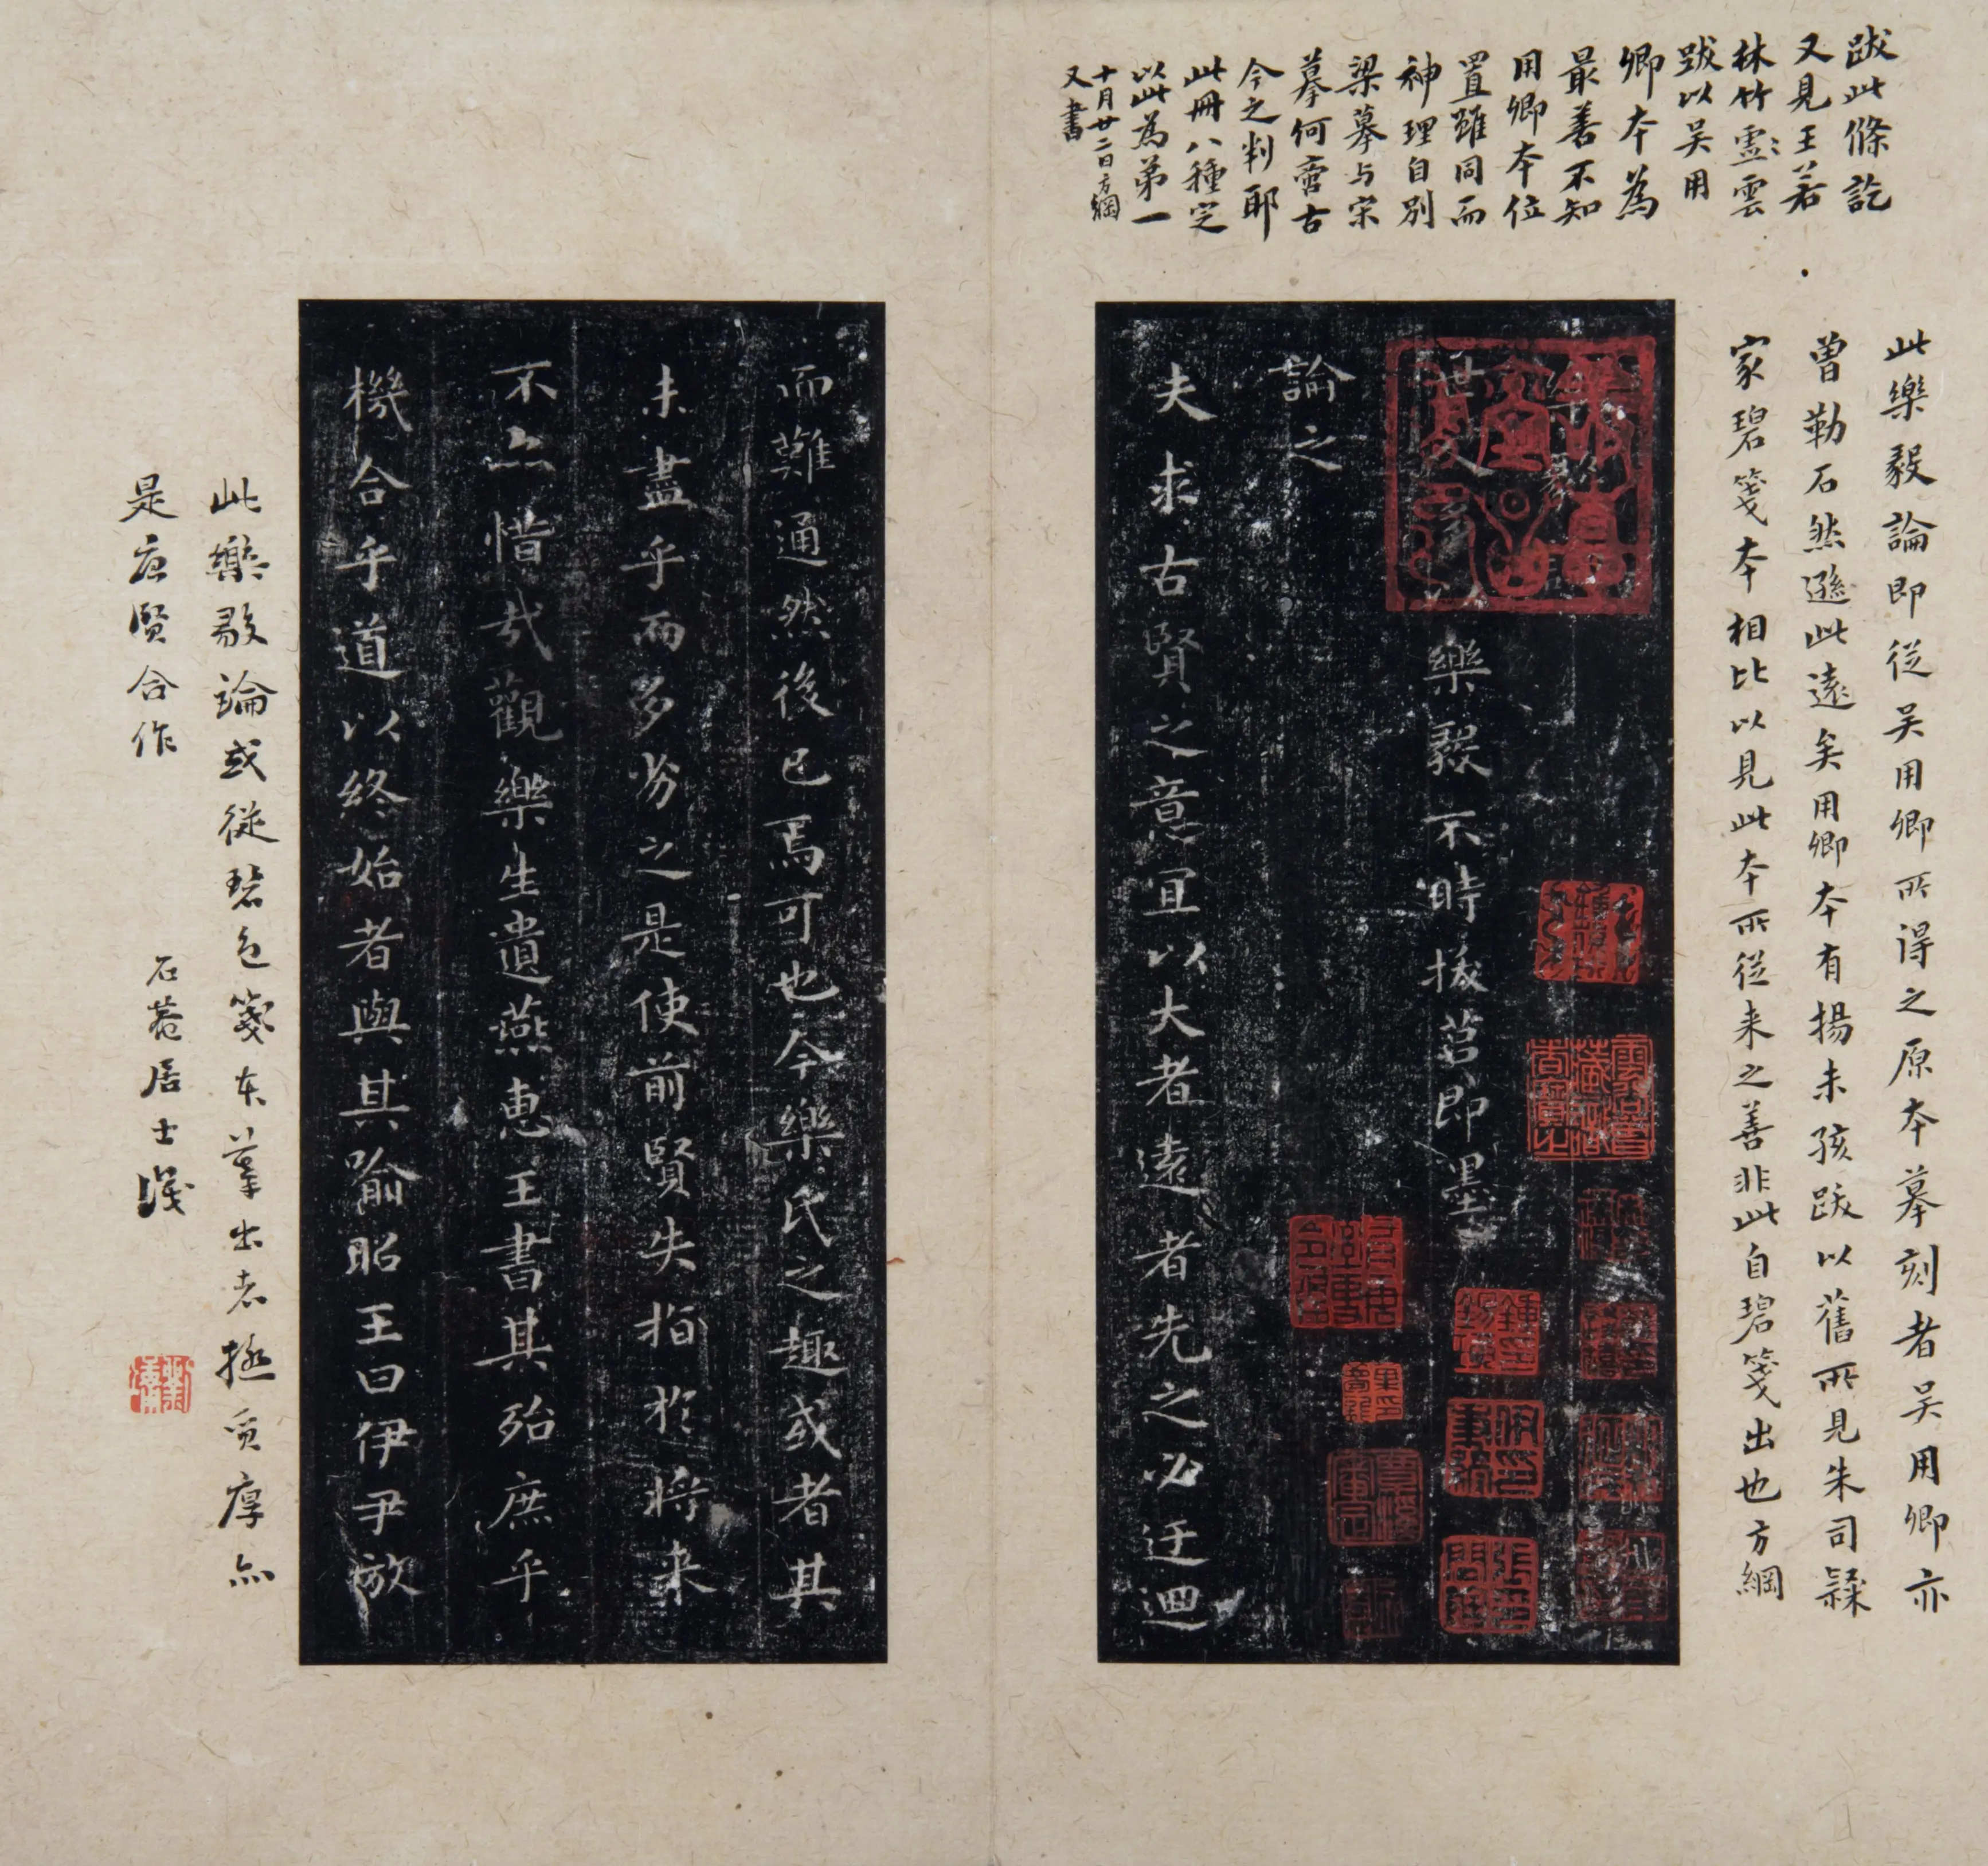 跋此條訖
又見王若
林竹雲雲
跋以吴用
卿本為
最善不知
用卿本位
置雖同而
神理自別
梁摹与宋
摹何啻古
今之判耶
此冊八種定
以此為第一
十月廿二日方綱
又書
此樂毅論即從吴用卿所得之原本摹刻者吴用卿亦
曾勒石然遜此遠矣用卿本有楊未孩跋以舊所見朱司
家碧箋本相比以見此本所從来之善非此自碧箋出也方綱
樂毅論
世人多以樂毅不時拔莒即墨
論之
夫求古賢之意宜以大者遠者先之必迂迴
而難通然後已焉可也今樂氏之趣或者其
未盡乎而多劣之是使前賢失指於将来
不亦惜哉觀樂生遺燕惠王書其殆庶乎
機合乎道以終始者與其喻昭王曰伊尹放
此樂毅論或從碧色箋本摹出者極質厚亦
是唐賢合作
石菴居士識